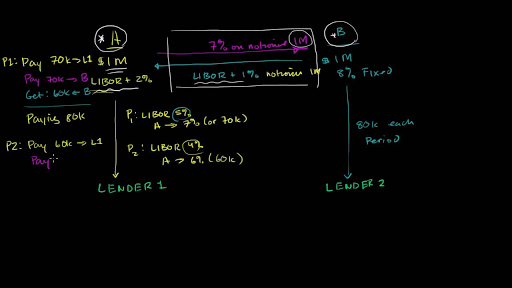 * A
7% on notional 1M
* B
P1: Pay 70k → L1
$1M
LIBOR + 1% notional 1M
$1M
Pay 70k → B
LIBOR + 2%
8% Fixed
Get: 60k ← B
Paying 80k
P1: LIBOR 5%
A → 7% (or 70k)
80k each
Period
P2: Pay 60k → L1
P2: LIBOR 4%
Pay
A → 6% (60k)
LENDER 1
LENDER 2